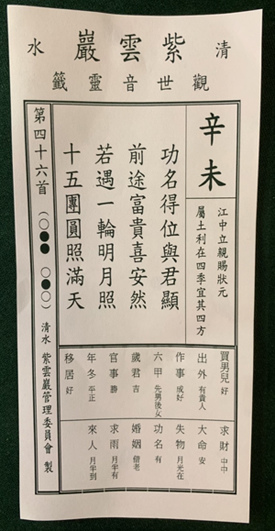 清
紫雲巖
水
觀世音靈籤
辛未
江中立親賜狀元
屬土利在四季宜其四方
功名得位與君顯
前途富貴喜安然
若遇一輪明月照
十五團圓照滿天
第四十六首(○●● ○●○) 清水 紫雲巖管理委員會 製
買男兒 好
出外 有貴人
作事 成好
六甲 先男後女
歲君 吉
官事 勝
年冬 平正
移居 好
求財 中中
大命 安
失物 月光在
功名 有
婚姻 偕老
求雨 月半有
來人 月半到